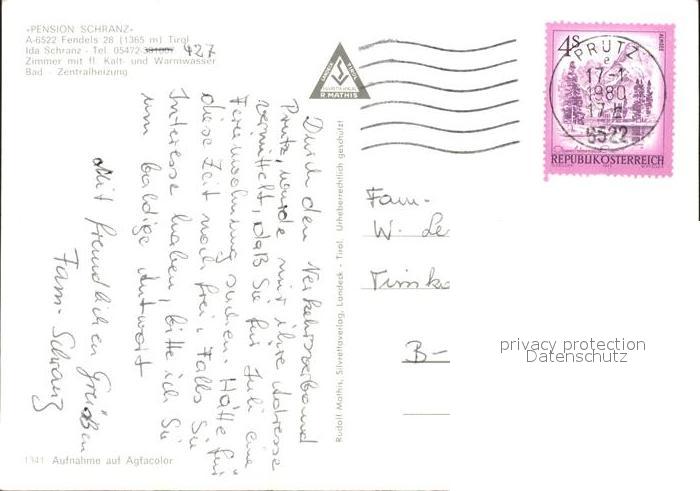 «PENSION SCHRANZ»
A-6522 Fendels 28 (1365 m) Tirol
Ida Schranz - Tel. 05472- 427
Zimmer mit fl. Kalt- und Warmwasser
Bad - Zentralheizung
Durch den Verkehrsverband
Prutz, wurde mir ihre Adresse
vermittelt, daß Sie für Juli eine
Ferienwohnung suchen. Hätte für
diese Zeit noch frei. Falls Sie
Interesse haben, bitte ich Sie
um baldige Antwort
Mit freundlichen Grüßen
Fam. Schranz
1341 Aufnahme auf Agfacolor
R MATHIS
Rudolf Mathis, Silvrettaverlag, Landeck - Tirol. Urheberrechtlich geschützt
4 S
ALMSEE
PRUTZ
e
17-1
1980
17
6522
REPUBLIK ÖSTERREICH
Fam.
W. Le
B-
privacy protection
Datenschutz